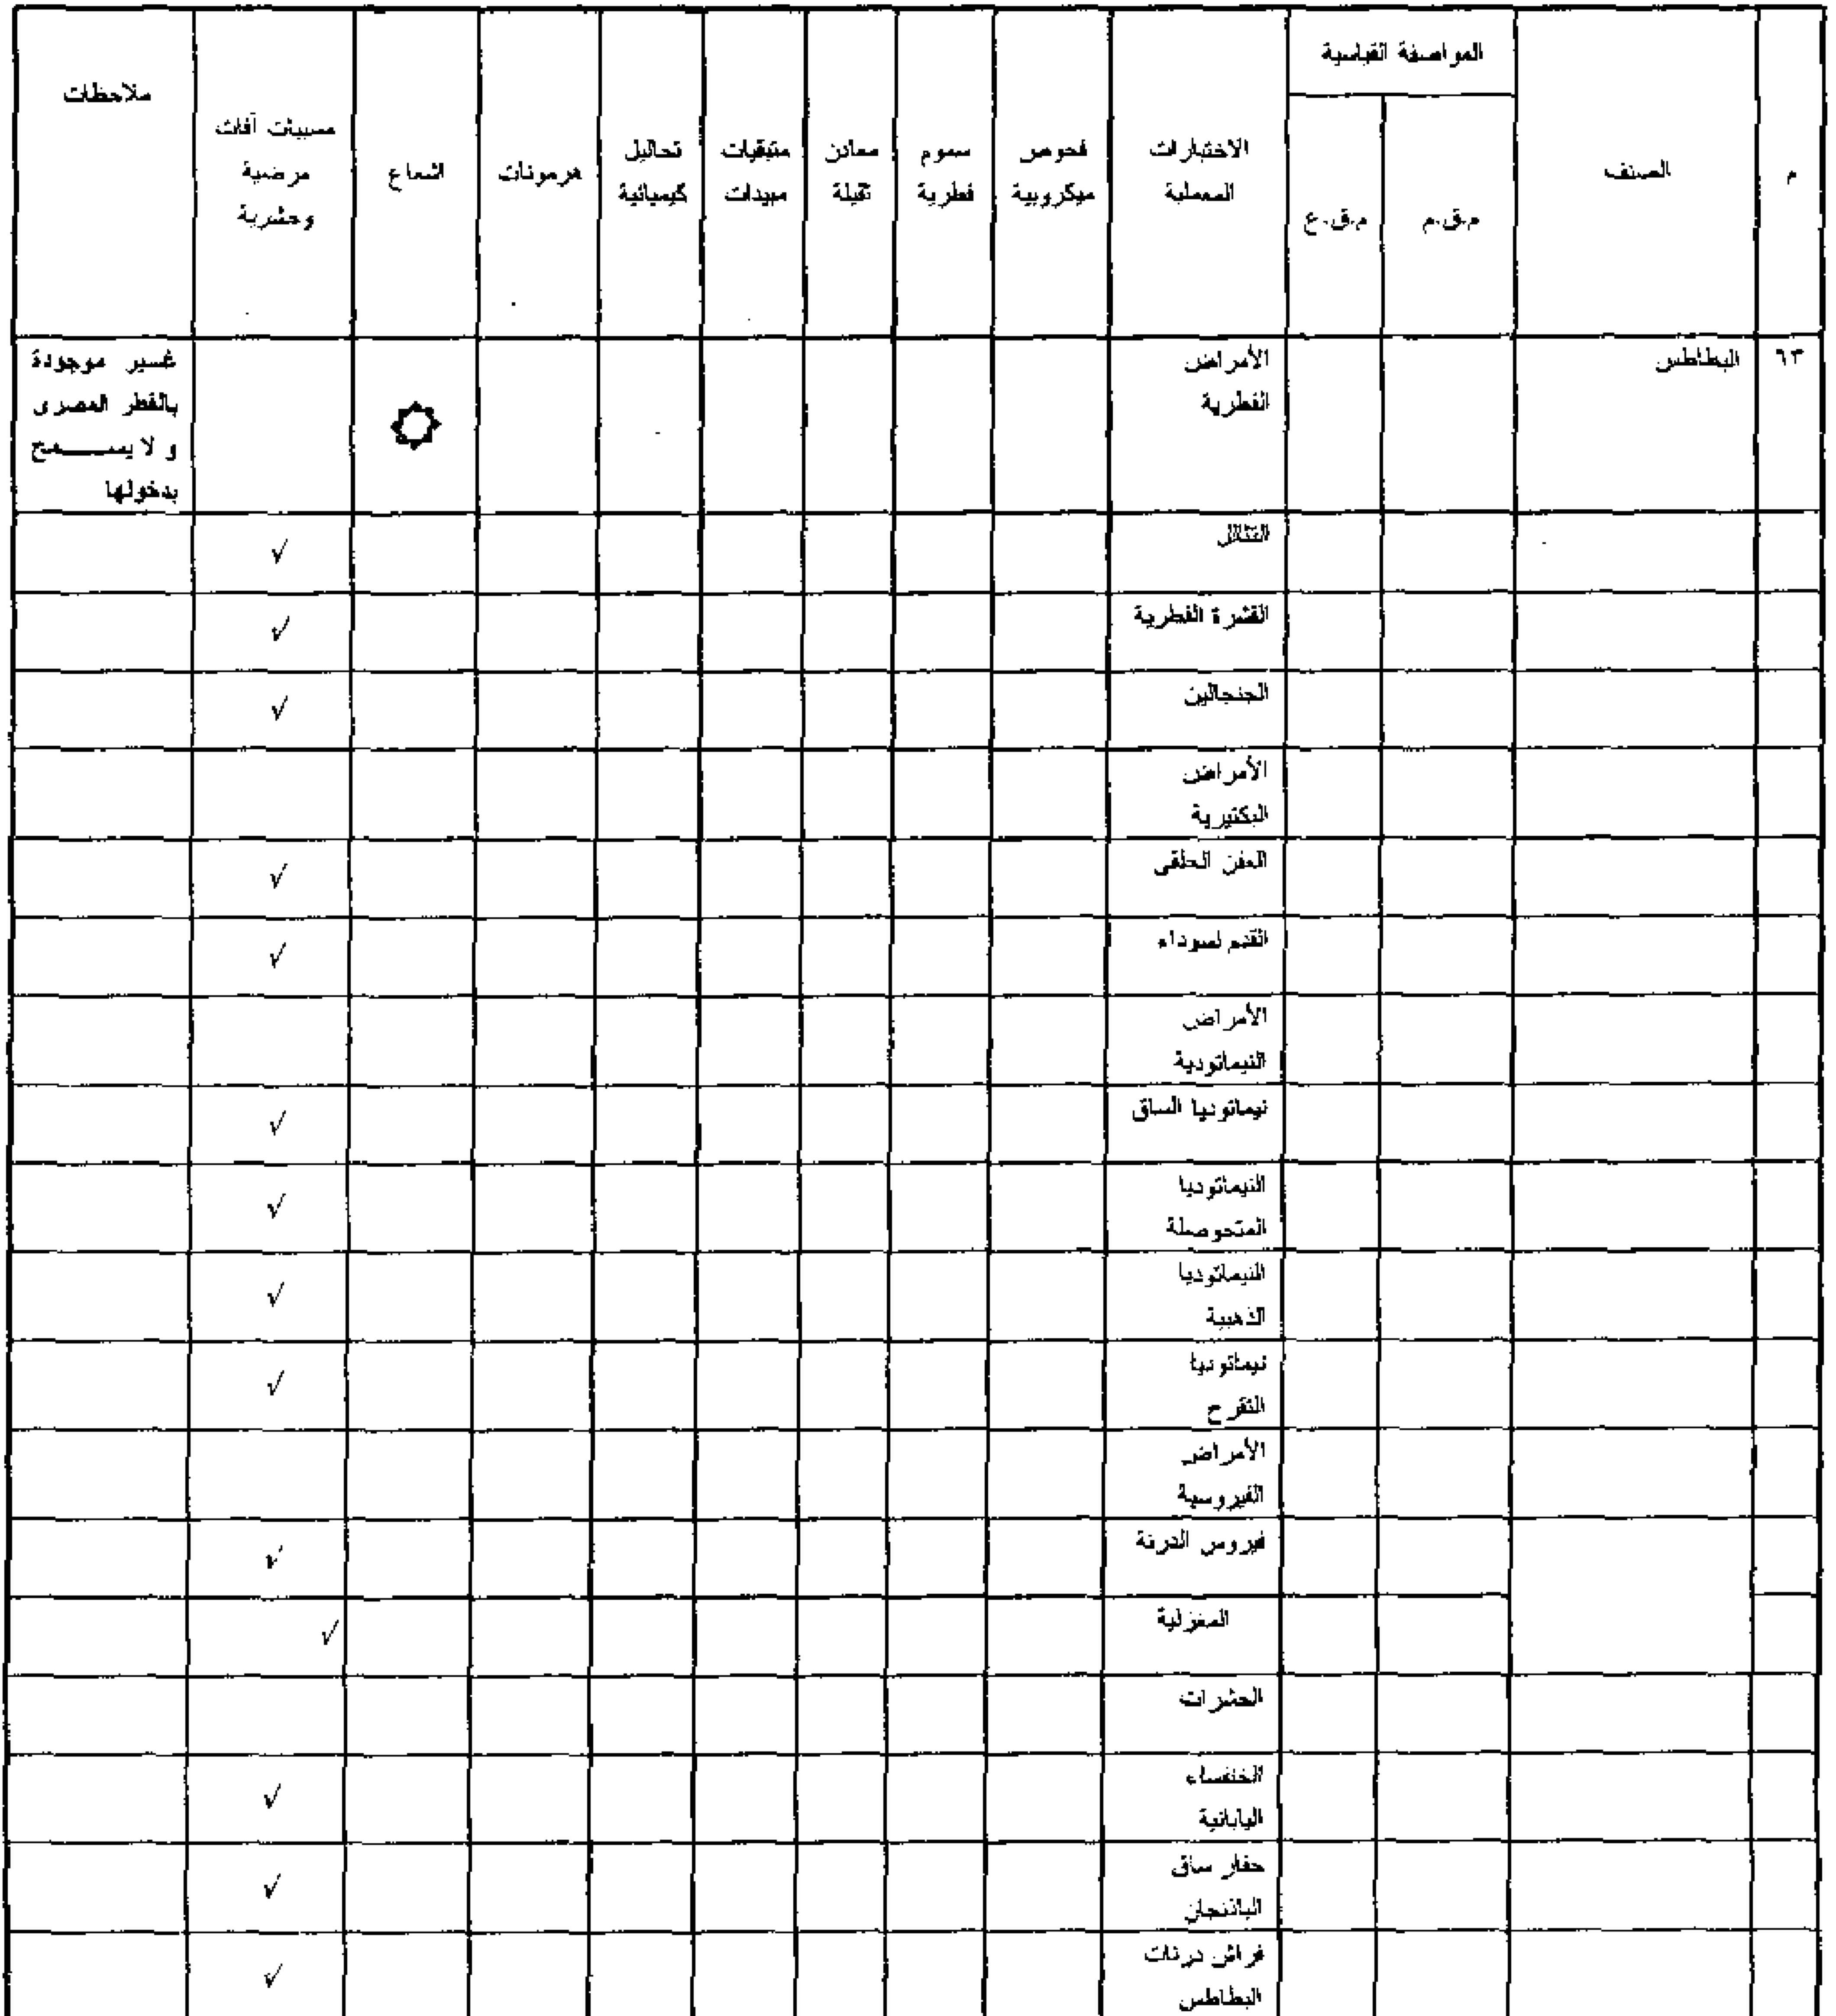 م
الصنف
المواصفة القياسية
م.ق.م
م.ق.ع
الاختبارات
المعملية
فحوص
ميكروبية
سموم
فطرية
معادن
ثقيلة
متبقيات
مبيدات
تحاليل
كيميائية
هرمونات
اشعاع
مسببات آفات
مرضية
وحشرية
ملاحظات
٦٣
البطاطس
الأمراض
الفطرية
غير موجودة
بالقطر المصرى
و لا يسمح
بدخولها
التثألل
√
القشرة الفطرية
√
الجنجالين
√
الأمراض
البكتيرية
العفن الحلقى
√
القدم لسوداء
√
الأمراض
النيماتودية
نيماتوديا الساق
√
النيماتوديا
المتحوصلة
√
النيماتوديا
الذهبية
√
نيماتوديا
التقرح
√
الأمراض
الفيروسية
فيروس الدرنة
√
المغزلية
√
الحشرات
الخنفساء
اليابانية
√
حفار ساق
الباذنجان
√
فراش درنات
البطاطس
√